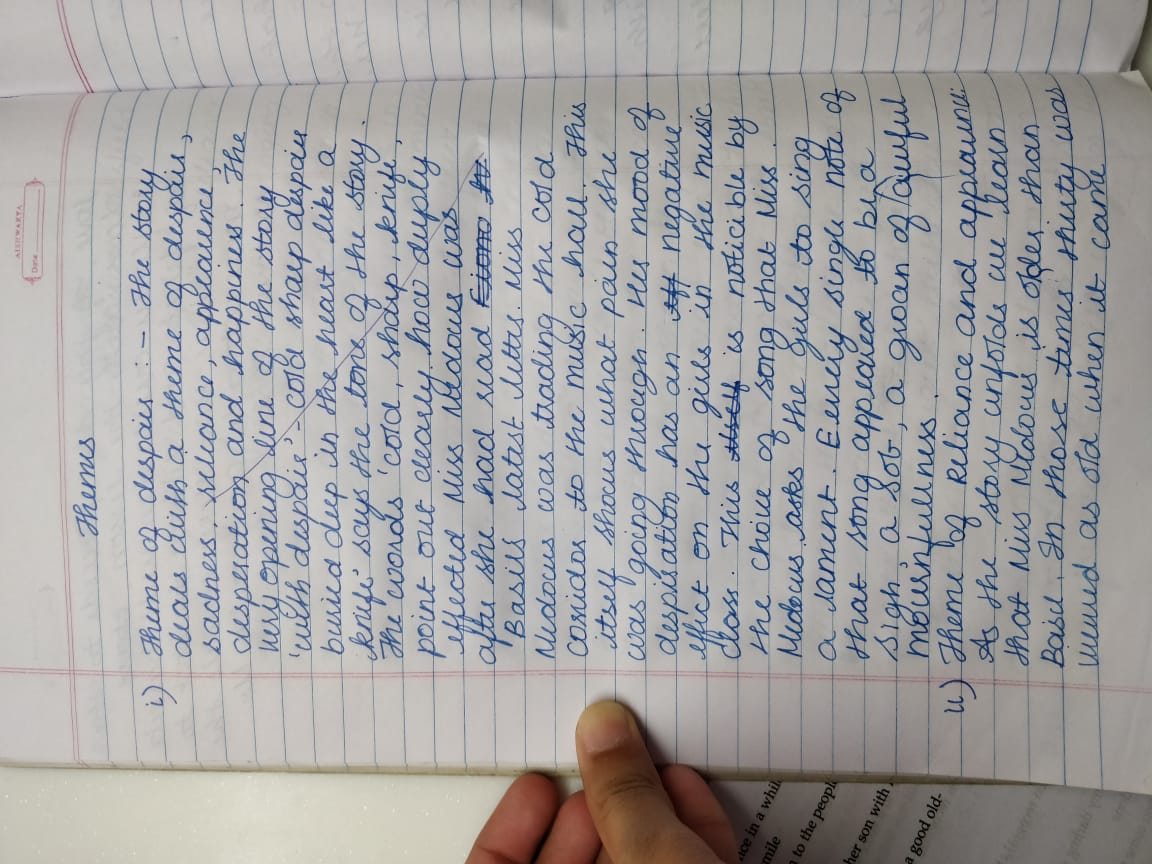 AISHWARYA
Date
Themes
i) Theme of despair :- The story
deals with a theme of despair,
sadness, reliance, appearence,
desperation and happiness. The
very opening line of the story
'with despair'- cold sharp despair
buried deep in the heart like a
knife' says the tone of the story.
The words 'cold, sharp, knife',
point out clearly how deeply
effected Miss Medows was
after she had read
Basil's latest letter. Miss
Medows was trading the cold
corridor to the music hall. This
itself shows what pain she
was going through. Her mood of
despration has an negative
effect on the girls in the music
class. This is noticible by
the choice of song that Miss.
Medows asks the girls to sing
a lament. Everey single note of
that song appeared to be a
sigh, a sob, a groan of awful
mournfullness.
ii) Theme of reliance and appearance:
As the story unfolds we learn
that Miss Medows is older than
Basil. In those times thirty was
viewed as old when it came
ice in a while
mile
to the people
her son with
a good old-